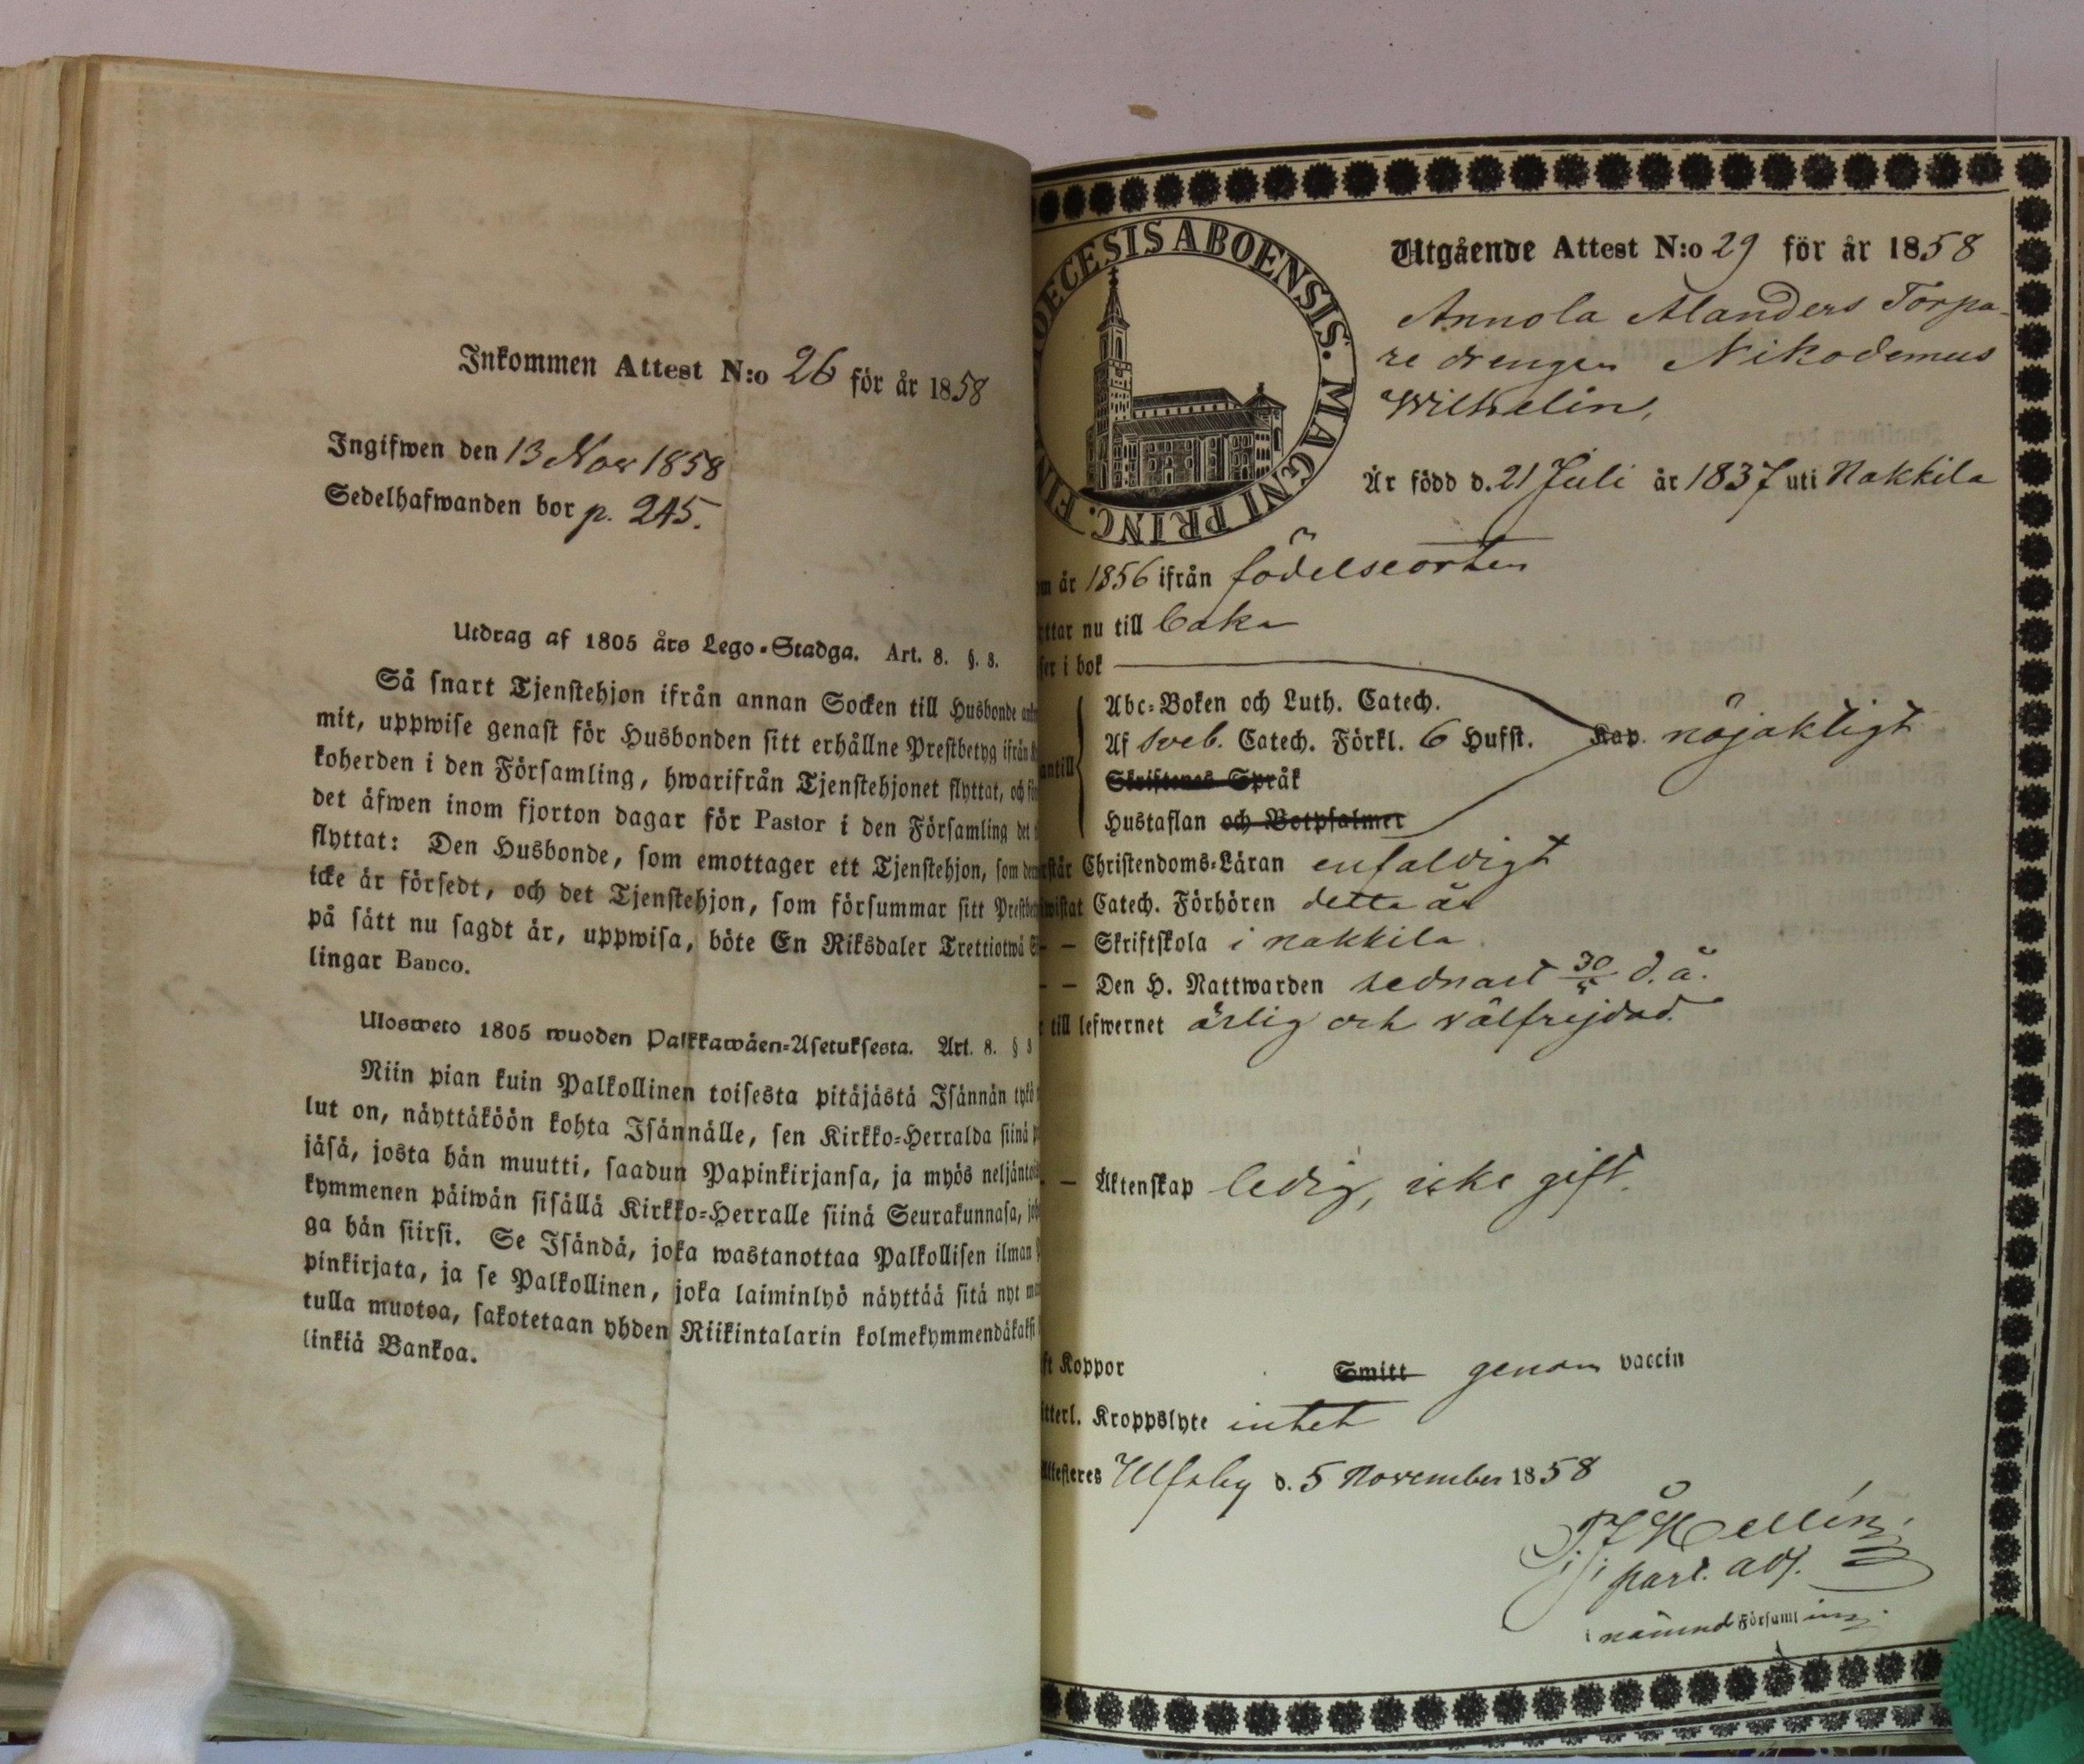 Inkommen Attest N:o 26 för år 1858
Ingifwen den 13 Nov 1858
Sedelhafwanden bor p. 245.
Utdrag af 1805 års Lego-Stadga. Art. 8. §. 3.
Så snart Tjenstehjon ifrån annan Socken till Husbonde
mit, uppwise genast för Husbonden sitt erhållne Prestbetyg ifrån
koherden i den Församling, hwarifrån Tjenstehjonet flyttat, och
det äfwen inom fjorton dagar för Pastor i den Församling det
flyttat: Den Husbonde, som emottager ett Tjenstehjon, som
icke är försedt, och det Tjenstehjon, som försummar sitt
på sätt nu sagdt är, uppwisa, böte En Riksdaler Trettiotwå
lingar Banco.
Ulosweto 1805 wuoden Palkkawäen-Asetuksesta. Art. 8. § 3
Niin pian kuin Palkollinen toisesta pitäjästä Isännän tykö
lut on, näyttäköön kohta Isännälle, sen Kirkko-Herralda siinä
jäsä, josta hän muutti, saadun Papinkirjansa, ja myös
kymmenen päiwän sisällä Kirkko-Herralle siinä Seurakunnasa,
ga hän siirsi. Se Isändä, joka wastanottaa Palkollisen ilman
pinkirjata, ja se Palkollinen, joka laiminlyö näyttää sitä nyt
tulla muotoa, sakotetaan yhden Riikintalarin kolmekymmendäkaksi
linkiä Bankoa.
DIOECESIS ABOENSIS. MAGNI PRINC. FIN
Utgående Attest N:o 29 för år 1858
Annola Alanders Torpa-
re drengen Nikodemus
Wilhelin,
Är född d. 21 Juli år 1837 uti Nakkila
om år 1856 ifrån födelseorten
ttar nu till baka
ser i bok
Abc-Boken och Luth. Catech.
antill Af Sveb. Catech. Förkl. 6 Hufst. Kap. nöjaktigt
Skriftenes Språk
Hustaflan och Botpsalmer
rstår Christendoms-Läran enfaldigt
wistat Catech. Förhören detta år
– – Skriftskola i Nakkila
– – Den H. Nattwarden sednast 30/5 d. å.
till lefwernet ärlig och välfrejdad.
– – Äktenskap ledig, icke gift.
ft Koppor Smitt genom vaccin
tterl. Kroppslyte intet
Attesteres Ulfsby d. 5 November 1858
Hellén,
past. adj.
i nämnd Församling.